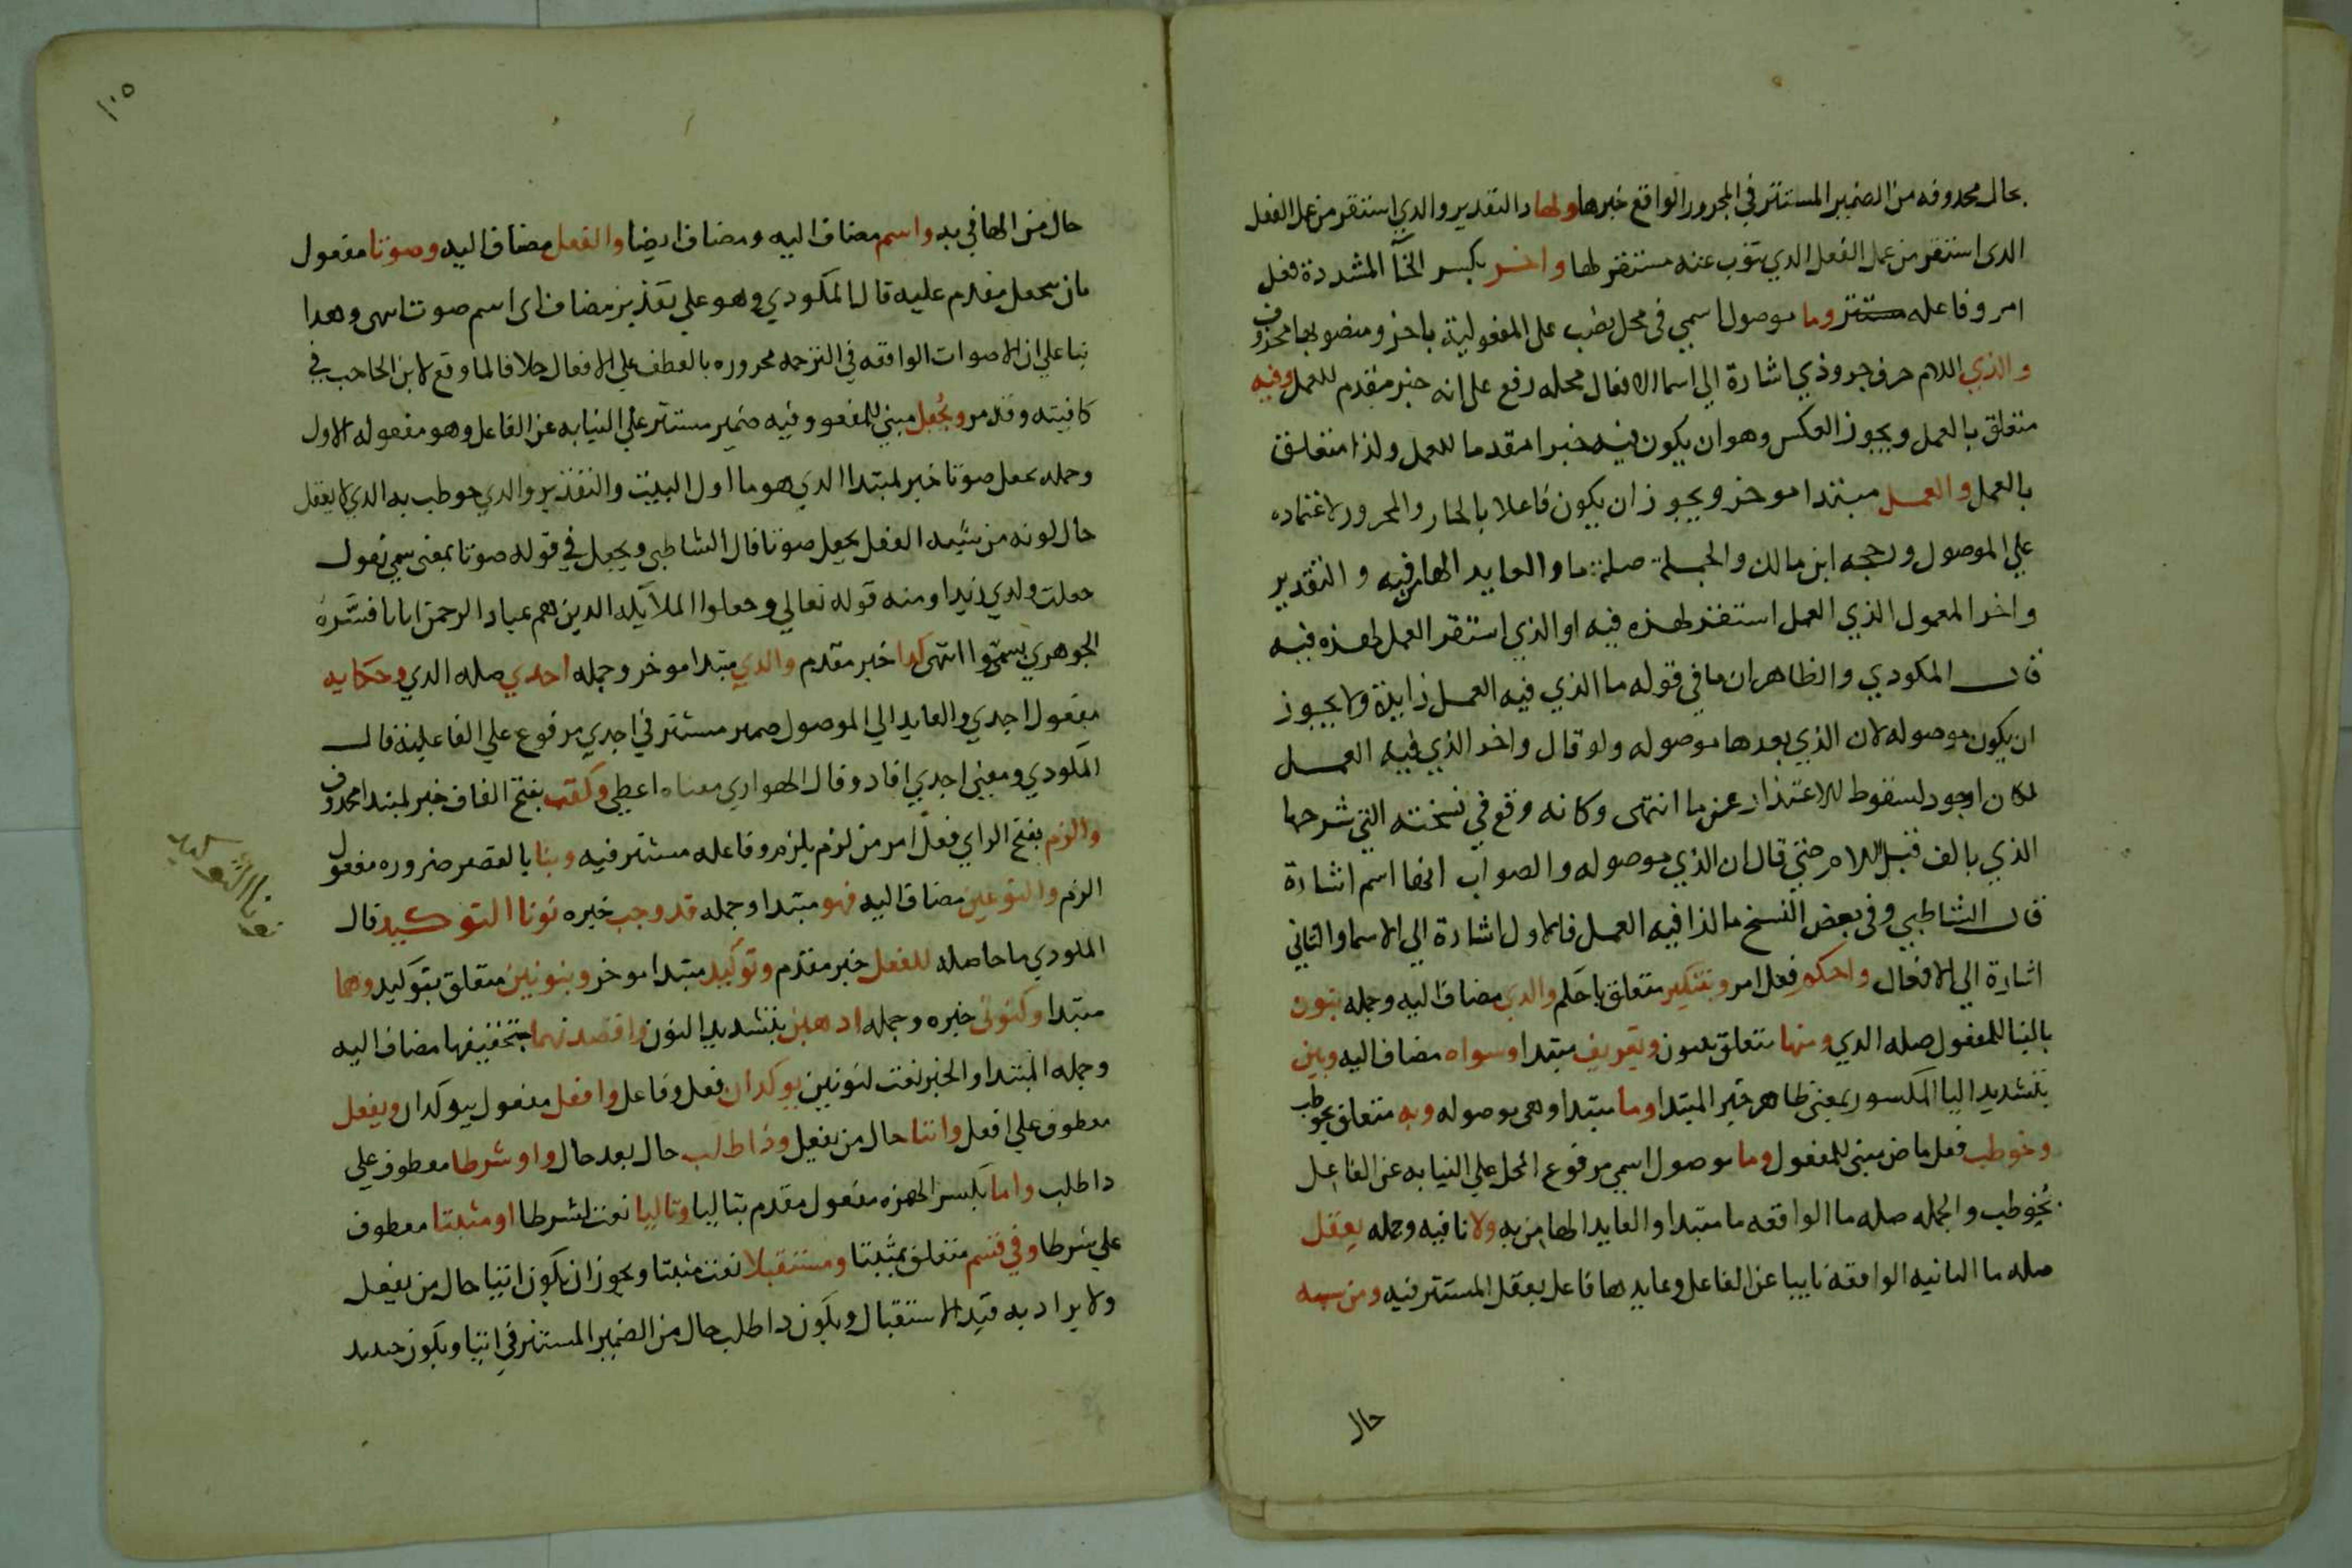 بحال محدوفه من الضمير المستتر في المجرور الواقع خبرها ولها والتقدير والدي استقر من عمل الفعل
الدى استقر من عمل الفعل الدي تنوب عنه مستقر لها واخر بكسر الخآ المشددة فعل
امر وفاعله مستتر وما موصول اسمي فى محل نصب على المفعولية باخر ومنصوبها محذوف
والذي اللام حرف جر وذي اشارة الي اسما الافعال محله رفع على انه خبر مقدم للعمل وفيه
متعلق بالعمل ويجوز العكس وهو ان يكون فيه خبرا مقدما للعمل ولذا متعلق
بالعمل والعمل مبتدا موخر ويجوز ان يكون فاعلا بالجار والمجرور لاعتماده
علي الموصول ورجحه ابن مالك والجملة صلة ما والعايد الها من فيه والتقدير
واخر المعمول الذي العمل استقر لهذه فيه او الذي استقر العمل لهذه فيه
قال المكودي والظاهر ان ما في قوله ما الذي فيه العمل زايدة ولا يجوز
ان يكون موصوله لان الذي بعدها موصوله ولو قال واخر الذي فيه العمل
لكان اجود لسقوط للاعتذار عن ما انتهى وكانه وقع في نسخته التي شرحها
الذي بالف قبل اللام حتي قال ان الذي موصوله والصواب انها اسم اشارة
قال الشاطبي وفى بعض النسخ ما لذا فيه العمل فالاول اشارة الي الاسما والثاني
اشارة الي الافعال واحكم فعل امر وبتنكير متعلق باحكم والدي مضاف اليه وجمله ينون
بالبنا للمفعول صله الدي ومنها متعلق بينون وتعريف مبتدا وسواه مضاف اليه وبين
بتشديد اليا المكسور بمعنى ظاهر خبر المبتدا وما مبتدا وهى موصوله وبه متعلق بخوطب
وخوطب فعل ماض مبنى للمفعول وما موصول اسمي مرفوع المحل علي النيابه عن الفاعل
بخوطب والجمله صله ما الواقعه ما مبتدا والعايد الها من به ولا نافيه وجمله يعقل
صله ما الثانيه الواقعة نايبا عن الفاعل وعايدها فاعل يعقل المستتر فيه ومن شبه
حال
١٠٥
حال من الها في به واسم مضاف اليه ومضاف ايضا والفعل مضاف اليه وصوتا مفعول
ثان بجعل مقدم عليه قال المكودي وهو علي تقدير مضاف اى اسم صوت انتهى وهدا
بنا علي ان الاصوات الواقعه في الترجمه مجروره بالعطف علي الافعال خلافا لما وقع لابن الحاجب في
كافيته وقد مر ويُجعل مبني للمفعو وفيه ضمير مستتر علي النيابه عن الفاعل وهو مفعوله الاول
وجمله يجعل صوتا خبر لمبتدا الدي هو ما اول البيت والتقدير والدي خوطب به الدي لا يعقل
حال كونه من شبه الفعل يجعل صوتا قال الشاطبي ويجعل في قوله صوتا بمعنى سمي تقول
جعلت ولدي زيدا ومنه قوله تعالي وجعلوا الملايكه الدين هم عباد الرحمن اناثا فسّره
الجوهري بسمّوا انتهى كدا خبر مقدم والدي مبتدا موخر وجمله اجدي صله الدي وحكايه
مفعول اجدي والعايد الي الموصول ضمير مستتر في اجدي مرفوع علي الفاعلية قال
المكودي ومعني اجدي افاد وقال الهواري معناه اعطي وكقب بفتح القاف خبر لمبتدا محدوف
والزم بفتح الزاي فعل امر من لزم يلزم وفاعله مستتر فيه وبنا بالقصر ضروره مفعول
الزم والنوعين مضاف اليه فهو مبتدا وجمله قد وجب خبره نونا التوكيد قال
المكودي ما حاصله للفعل خبر مقدم وتوكيد مبتدا موخر وبنونين متعلق بتوكيد وهما
مبتدا وكنونى خبره وجمله ادهبن بتشديد النون واقصدنهما بتخفيفها مضاف اليه
وجمله المبتدا والخبر نعت لنونين يوكدان فعل وفاعل وافعل مفعول يوكدان ويفعل
معطوف علي افعل واتيا حال من يفعل وذا طلب حال بعد حال واو شرطا معطوف علي
دا طلب واما بكسر الهمزه مفعول مقدم بتاليا وتاليا نعت لشرطا او مثبتا معطوف
علي شرطا وفي قسم متعلق بمثبتا ومستقبلا نعت مثبتا ويجوز ان يكون اتيا حال من يفعل
ولا يراد به قيد الاستقبال ويكون دا طلب حال من الضمير المستتر في اتيا ويكون حينيد
نونا التوكيد